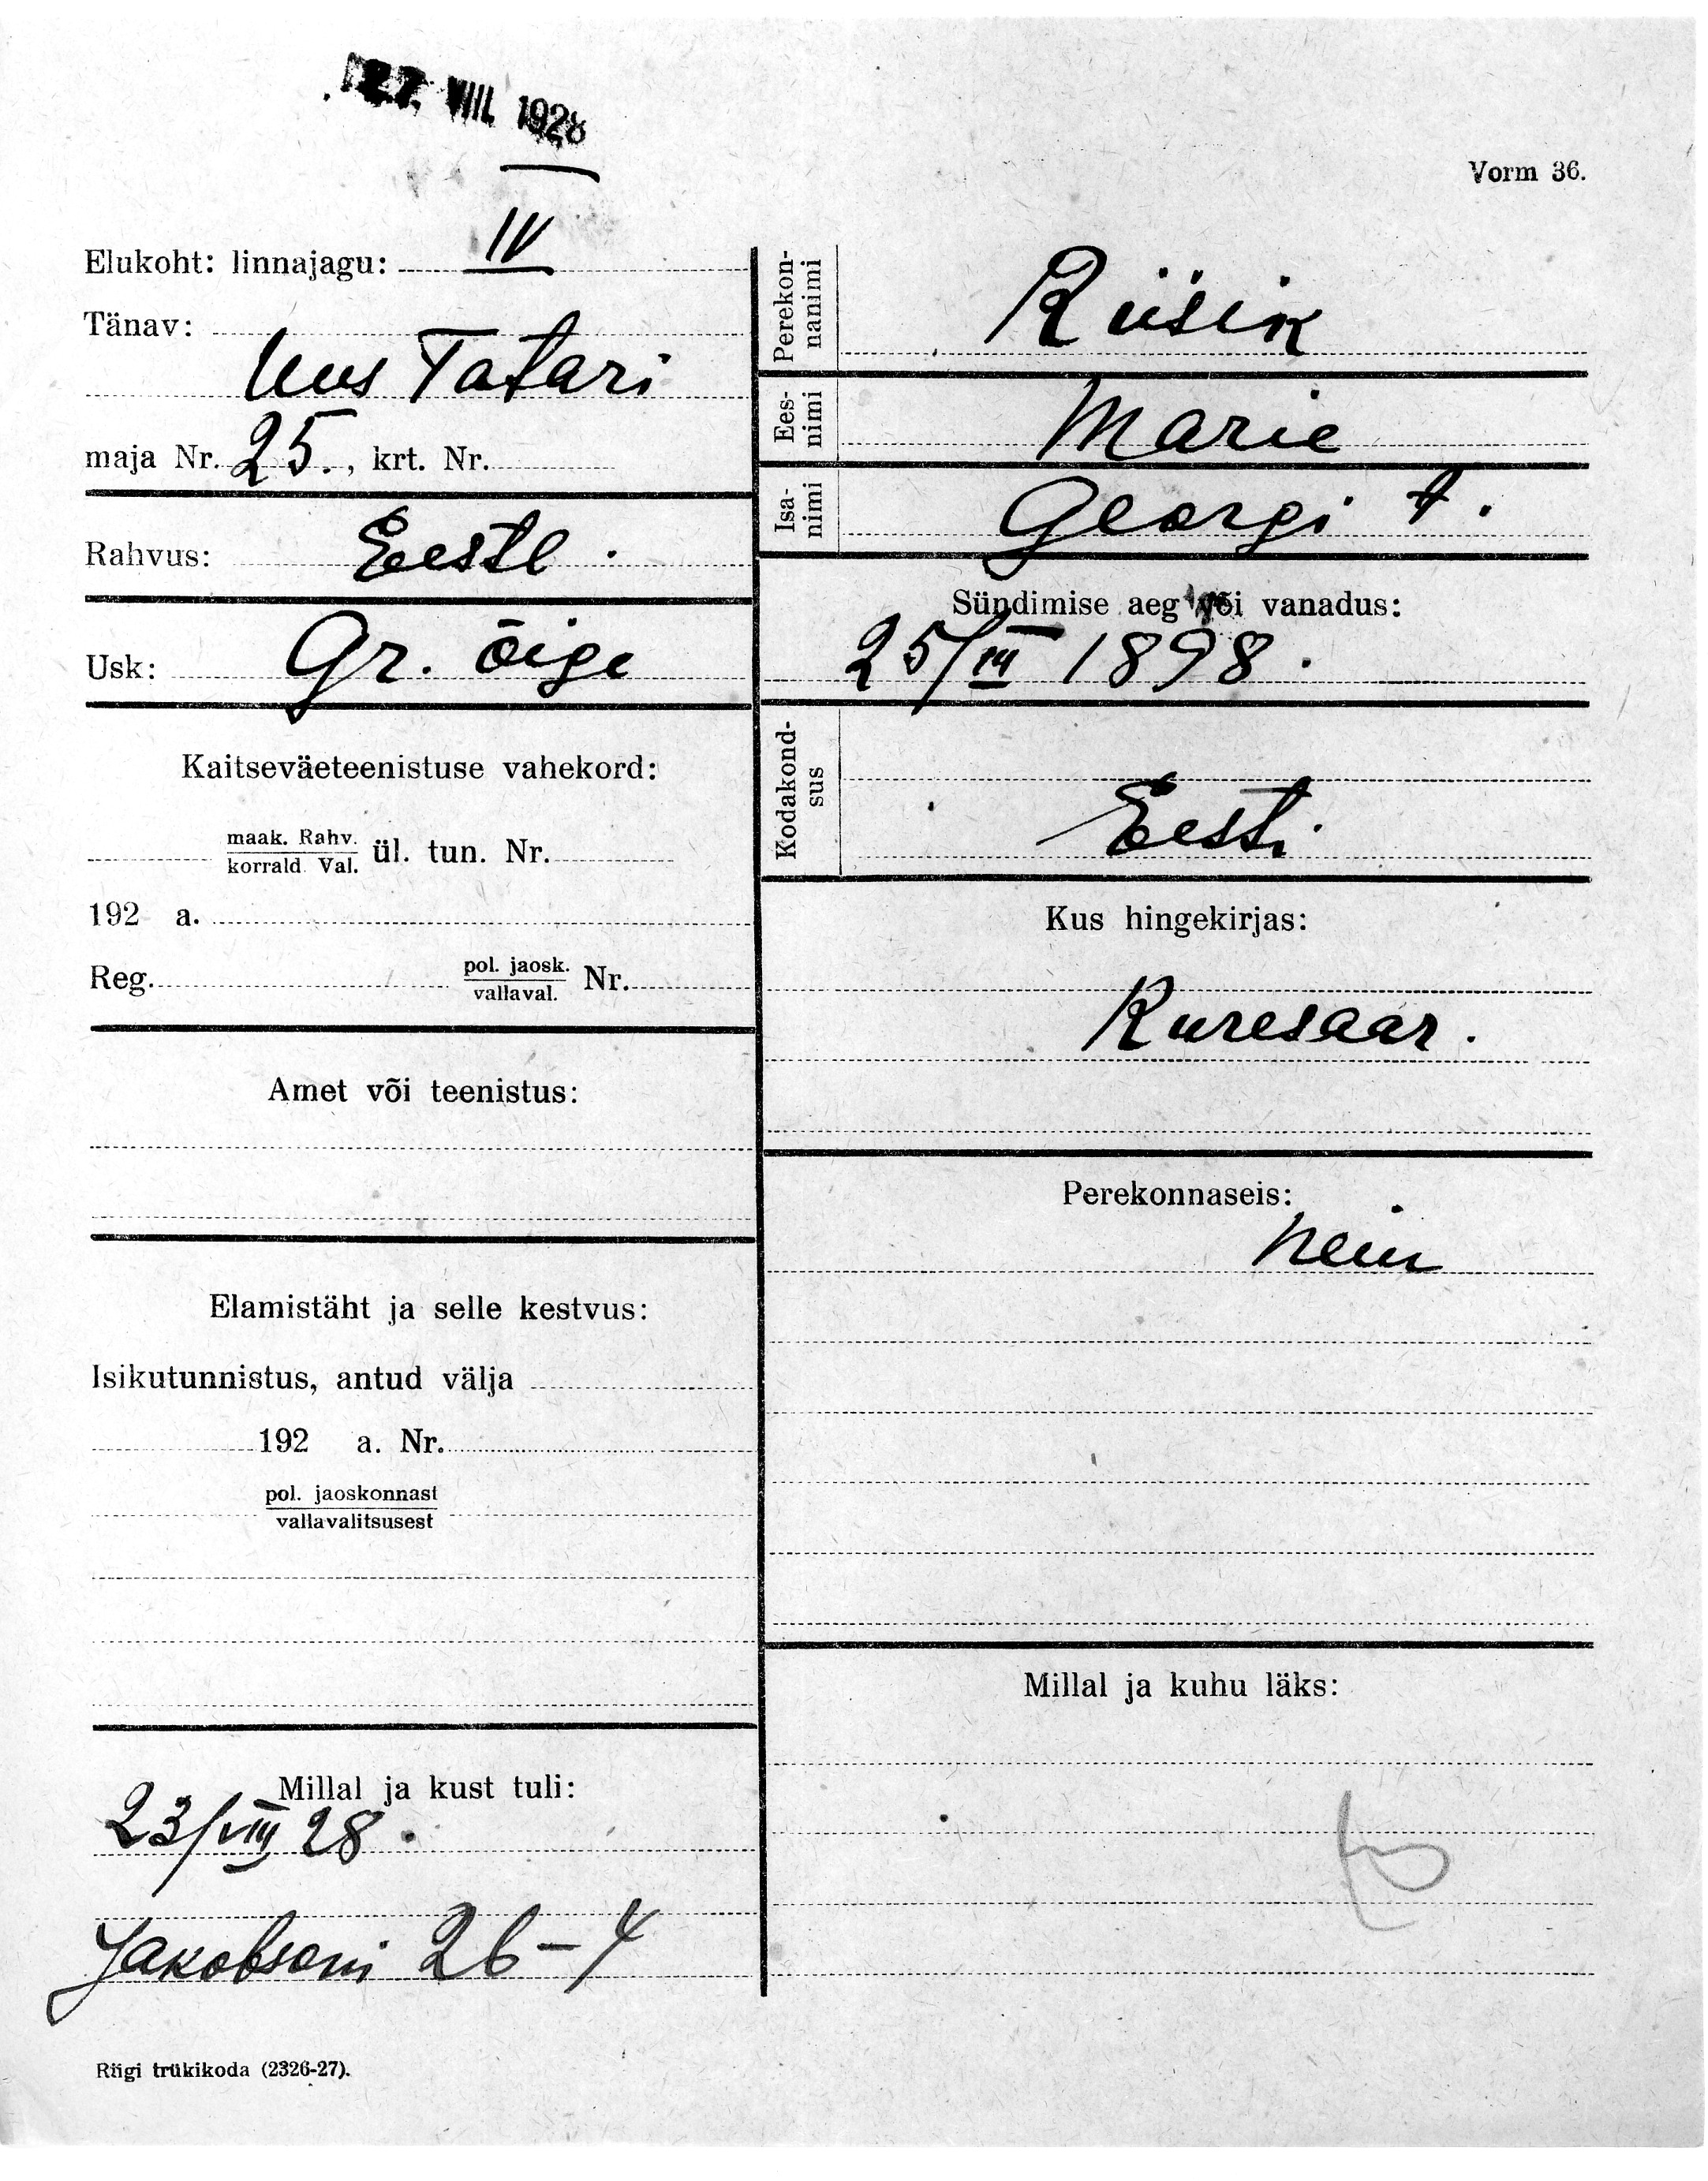 27. VIII. 1928
Vorm 36.
Elukoht: linnajagu: IV
Tänav:
Uus Tatari
maja Nr. 25., krt. Nr.
Rahvus: Eestl.
Usk: Gr. õige
Kaitseväeteenistuse vahekord:
maak. Rahv.
korrald. Val. ül. tun. Nr.
192 a.
Reg. pol. jaosk. Nr.
vallaval.
Amet või teenistus:
Elamistäht ja selle kestvus:
Isikutunnistus, antud välja
192 a. Nr.
pol. jaoskonnast
vallavalitsusest
Millal ja kust tuli:
23/VIII 28.
Jakobsoni 26-4
Riigi trükikoda (2326-27).
Perekon-
nanimi
Riisik
Ees-
nimi
Marie
Isa-
nimi
Georgi t.
Sündimise aeg või vanadus:
25/III 1898.
Kodakond-
sus
Eesti.
Kus hingekirjas:
Kuresaar.
Perekonnaseis:
neiu
Millal ja kuhu läks: